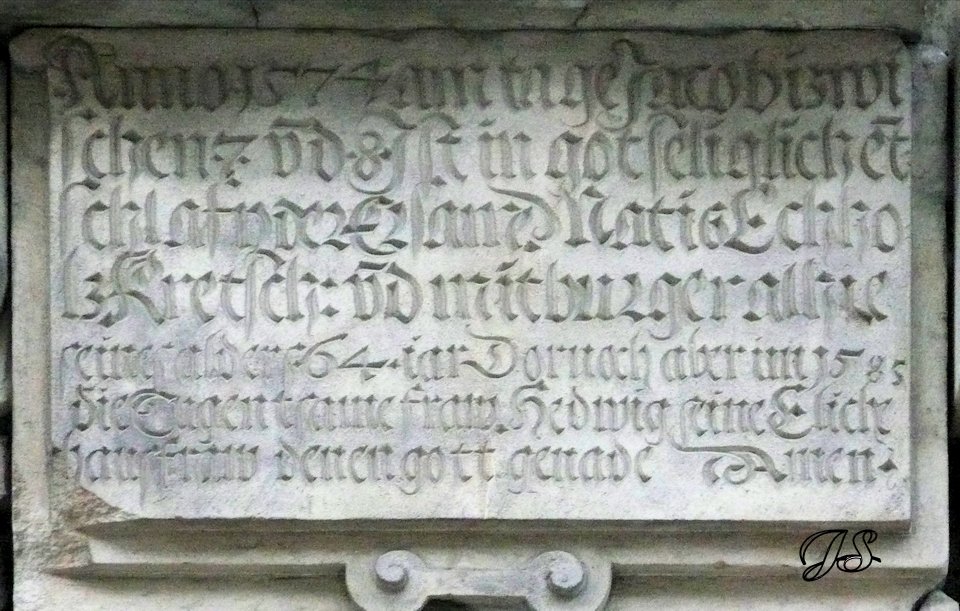 Anno 1574 am tage Jacobi zwi
schen · 7 · vñd · 8 Ist in gotseliglichē t
schlafwder Ersame Natiß Echho
lz Kretsch: vñd mitburger alhie
seines alders 64 · iar Dornoch aber im 1585
die Tugentsame fraw. Hedwig seine Eliche
hausfraw denen gott genade Amen ·
JS